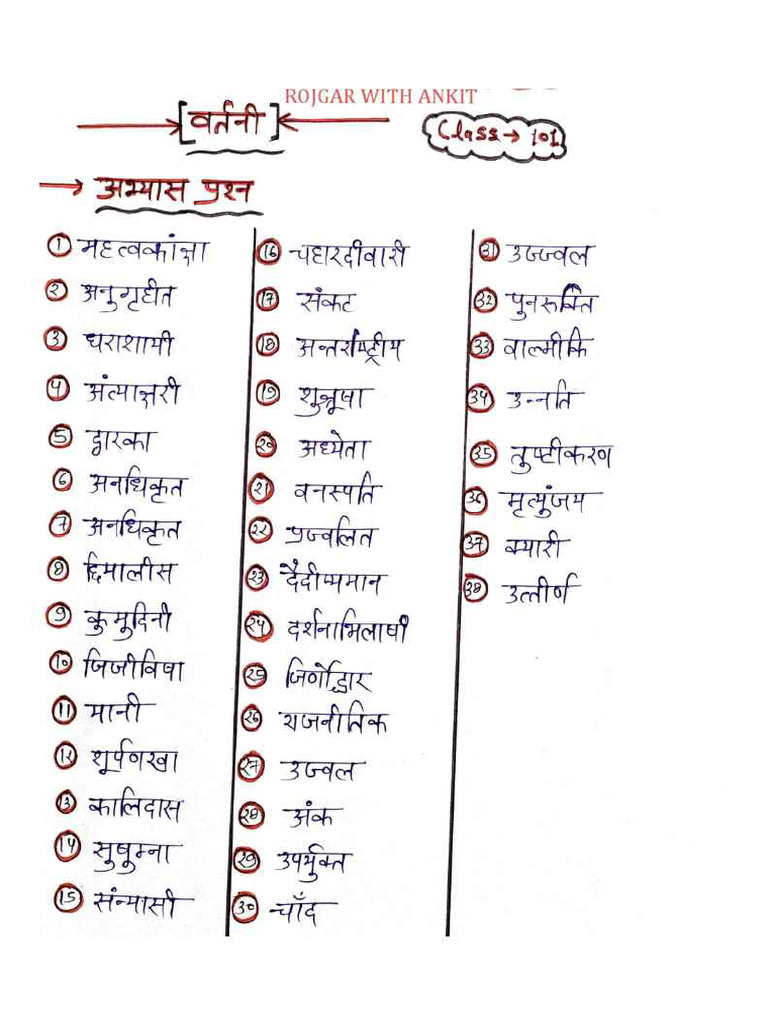 ROJGAR WITH ANKIT
[वर्तनी]
Class→ 101
→ अभ्यास प्रश्न
1 महत्वकांक्षा
2 अनुगृहीत
3 धराशायी
4 अंत्याक्षरी
5 द्वारका
6 अनधिकृत
7 अनधिकृत
8 छिमालीस
9 कुमुदिनी
10 जिजीविषा
11 मानी
12 शूर्पणखा
13 कालिदास
14 सुषुम्ना
15 संन्यासी
16 चहारदीवारी
17 संकट
18 अन्तर्राष्ट्रीय
19 शुश्रूषा
20 अध्येता
21 वनस्पति
22 प्रज्वलित
23 दैदीप्यमान
24 दर्शनाभिलाषी
25 जिर्णोद्धार
26 राजनीतिक
27 उज्वल
28 अंक
29 उपर्युक्त
30 चाँद
31 उज्ज्वल
32 पुनरूक्ति
33 वाल्मीकि
34 उन्नति
35 तुष्टीकरण
36 मृत्युंजय
37 क्यारी
38 उत्तीर्ण